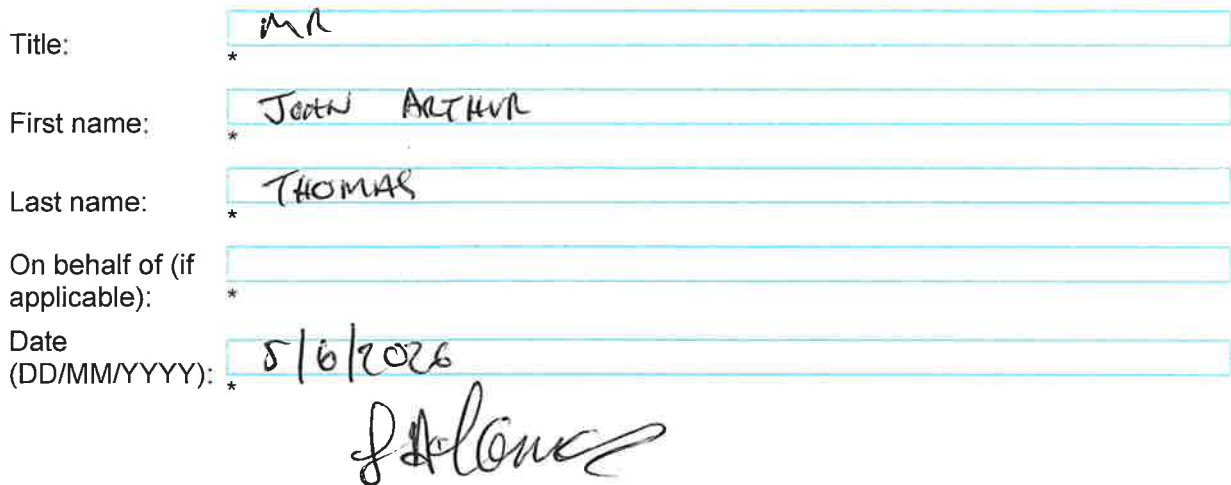 Title: MR
*
First name: JOHN ARTHUR
*
Last name: THOMAS
*
On behalf of (if
applicable):
*
Date
(DD/MM/YYYY): 5/6/2026
*